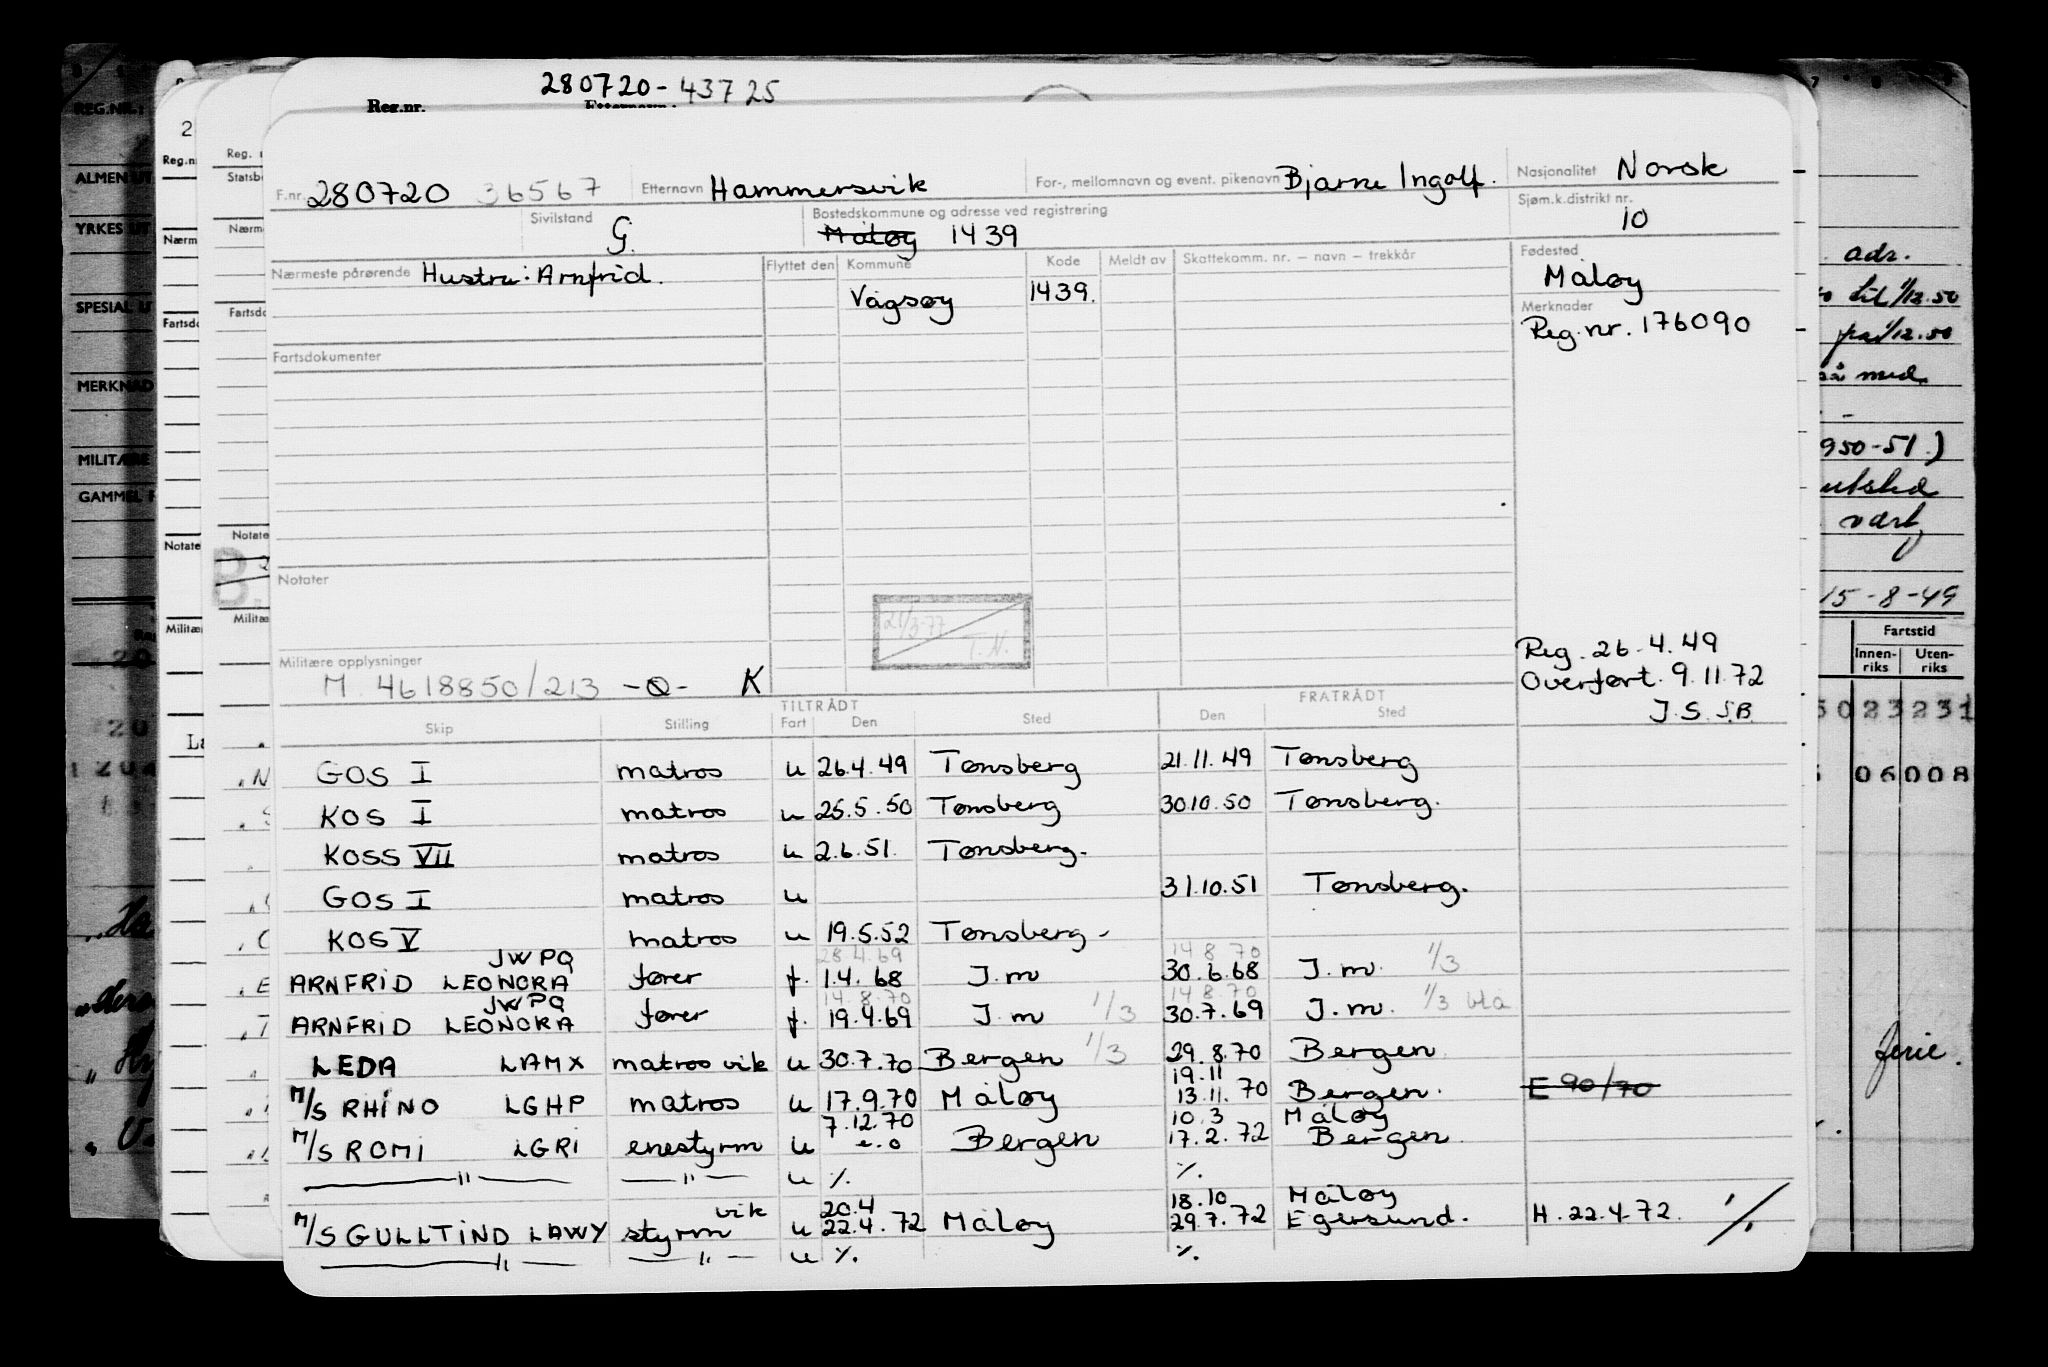 280720-43725
Reg.nr. Etternavn:
F.nr. 280720 36567 Etternavn Hammersvik For-, mellomnavn og event. pikenavn Bjarne Ingolf. Nasjonalitet Norsk
Sivilstand G. Bostedskommune og adresse ved registrering Måløy 1439 Sjøm.k.distrikt nr. 10
Nærmeste pårørende Hustru: Arnfrid. Flyttet den Kommune Kode Meldt av Skattekomm. nr. – navn – trekkår Fødested
Måløy
Vågsøy 1439.
Merknader
Reg.nr. 176090
Fartsdokumenter
Notater
21/3-77
T.N.
Militære opplysninger
M. 4618850/213 -O- K
Reg. 26.4.49
Overført. 9.11.72
J.S. S.B.
TILTRÅDT FRATRÅDT
Skip Stilling Fart Den Sted Den Sted
GOS I matros u 26.4.49 Tønsberg 21.11.49 Tønsberg
KOS I matros u 25.5.50 Tønsberg 30.10.50 Tønsberg.
KOSS VII matros u 2.6.51. Tønsberg.
GOS I matros u 31.10.51 Tønsberg.
KOS V matros u 19.5.52 Tønsberg.
JWPQ 28.4.69 14 8 70
ARNFRID LEONORA fører f. 1.4.68 I.m 30.6.68 I.m. 1/3
JWPQ 14.8.70 14 8.70
ARNFRID LEONORA fører f. 19.4.69 I.m 1/3 30.7.69 I.m. 1/3 blå
LEDA LAMX matros vik u 30.7.70 Bergen 1/3 29.8.70 Bergen
19.11
M/S RHINO LGHP matros u 17.9.70 Måløy 13.11.70 Bergen. E 90/70
7.12.70 10.3 Måløy
M/S ROMI LGRI enestyrm u e.o Bergen 17.2.72 Bergen
—"— —"— u %. %.
vik 20.4 18.10 Måløy
M/S GULLTIND LAWY styrm u 22.4.72 Måløy 29.7.72 Egersund. H.22.4.72. %
—"— —"— u %. %.
REG.NR.:
ALMEN UT
YRKES UT
SPESIAL UT
MERKNAD
MILITÆRE
GAMMEL
Reg.nr
Nærm
Fartsdo
Notate
Militæ
Reg.
Statsbo
Nærm
Fartsdo
Notate
B.
Militæ
adr.
til 1/12.50
fra 1/12.50
med.
950-51)
utsted
15-8-49
Fartstid
Innen-riks Uten-riks
5023231
06008
ferie.